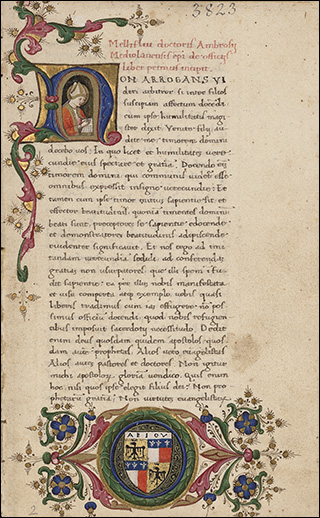 3823
Melliflui doctoris Ambrosij
Mediolanensis epi de officijs
liber primus incipit
NON ARROGANS VI
deri arbitror si inter filios
suscipiam affectum docedi
cum ipse humilitatis magister
dixit. Venite filij audite
me: timorem domini
docebo vos: In quo licet et humilitatem
eius spectare et gratia. Docendo
timorem domini qui communis videtur esse
omnibus expressit insigne verecundie: Et
tamen cum ipse timor initium sapientie sit et
effector beatitudinis
beati sunt preceptore se sapientie edocende
et demonstratore beatitudinis adipiscende
evidenter significavit. Et nos ergo ad imitandam
verecundia seduli ad conferendam
gratiam non usurpatores
dit sapientie ea per illum nobis manifestata
et visu comperta atque exemplo vobis quasi
liberis tradimus cum iam effugere non possimus
officium docendi quod nobis refugientibus
imposuit sacerdotij necessitudo Dedit
enim deus quosdam quidem apostolos quosdam
aut prophetas. Alios vero euangelistas
Alios aute pastores et doctores. Non igitur
michi apostolorum gloriam vendico. Quis enim
hoc nisi quos ipse elegit filius dei: Non prophetarum
gratia: Non virtutem euangelistarum
2